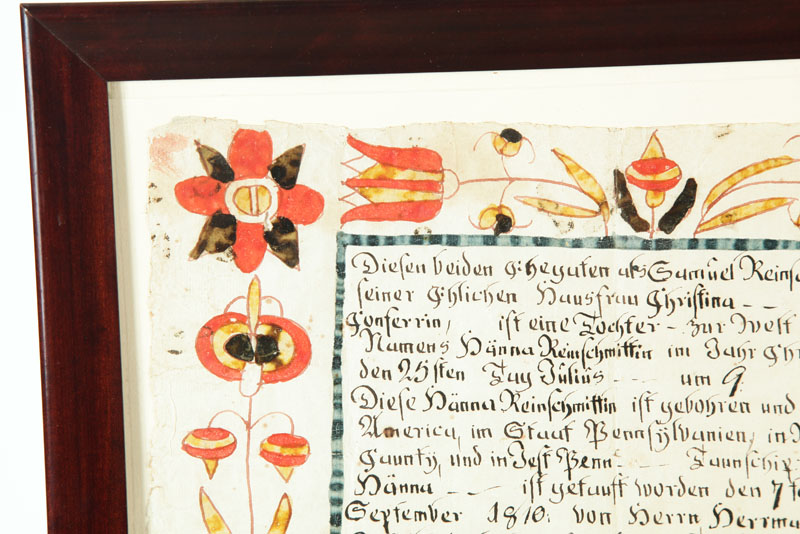 Diesen beiden Ehegaten als Samuel Reinsc
seiner Ehlichen Hausfrau Christina - -
Gonserrin, ist eine Tochter - zur Welt
Namens Hänna Reinschmittin im Jahr Chr
den 25sten Tag Julius - - - um 9.
Diese Hänna Reinschmittin ist gebohren und
America, im Staat Pennsylvanien, in
Caunty, und in West Penn - Taunschip
Hänna - - ist getauft worden den 7
September 1810. von Herrn Herrma